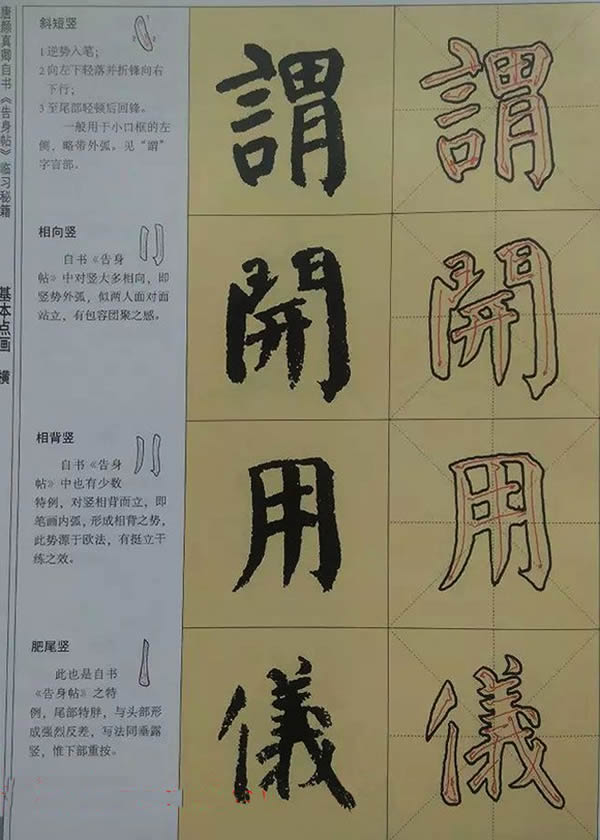 唐颜真卿自书《告身帖》临习秘籍
基本点画 横
斜短竖
1 逆势入笔；
2 向左下轻落并折锋向右
下行；
3 至尾部轻顿后回锋。
一般用于小口框的左
侧，略带外弧。见“謂”
字言部。
謂
謂
相向竖
自书《告身
帖》中对竖大多相向，即
竖势外弧，似两人面对面
站立，有包容团聚之感。
開
開
相背竖
自书《告身
帖》中也有少数
特例，对竖相背而立，即
笔画内弧，形成相背之势，
此势源于欧法，有挺立干
练之效。
用
用
肥尾竖
此也是自书
《告身帖》之特
例，尾部特胖，与头部形
成强烈反差，写法同垂露
竖，惟下部重按。
儀
儀